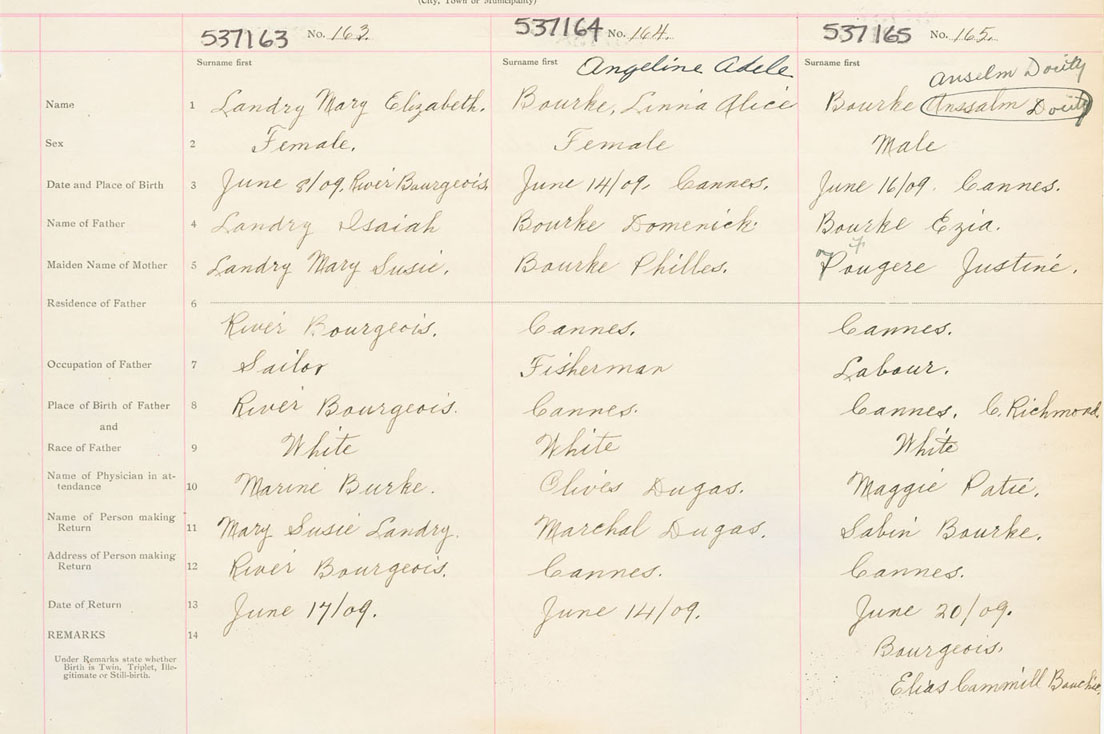 (City, Town or Municipality)
537163 No. 163. 537164 No. 164. 537165 No. 165.
Surname first Surname first Angeline Adele Surname first Anselm Douty
Name 1 Landry Mary Elizabeth. Bourke, Linna Alice Bourke Anssalm Douty
Sex 2 Female. Female Male
Date and Place of Birth 3 June 8/09, River Bourgeois June 14/09. Cannes. June 16/09. Cannes.
Name of Father 4 Landry Isaiah Bourke Domenick Bourke Ezia.
Maiden Name of Mother 5 Landry Mary Susie. Bourke Philles. Fougere Justine.
Residence of Father 6
River Bourgeois. Cannes. Cannes.
Occupation of Father 7 Sailor Fisherman Labour.
Place of Birth of Father 8 River Bourgeois. Cannes. Cannes, C. Richmond.
and
Race of Father 9 White White White
Name of Physician in at-
tendance 10 Marine Burke. Clives Dugas. Maggie Patie.
Name of Person making
Return 11 Mary Susie Landry. Marchal Dugas. Sabin Bourke.
Address of Person making
Return 12 River Bourgeois. Cannes. Cannes.
Date of Return 13 June 17/09. June 14/09. June 20/09.
REMARKS 14 Bourgeois.
Under Remarks state whether
Birth is Twin, Triplet, Ille-
gitimate or Still-birth.
Elias Cammill Bouchie.